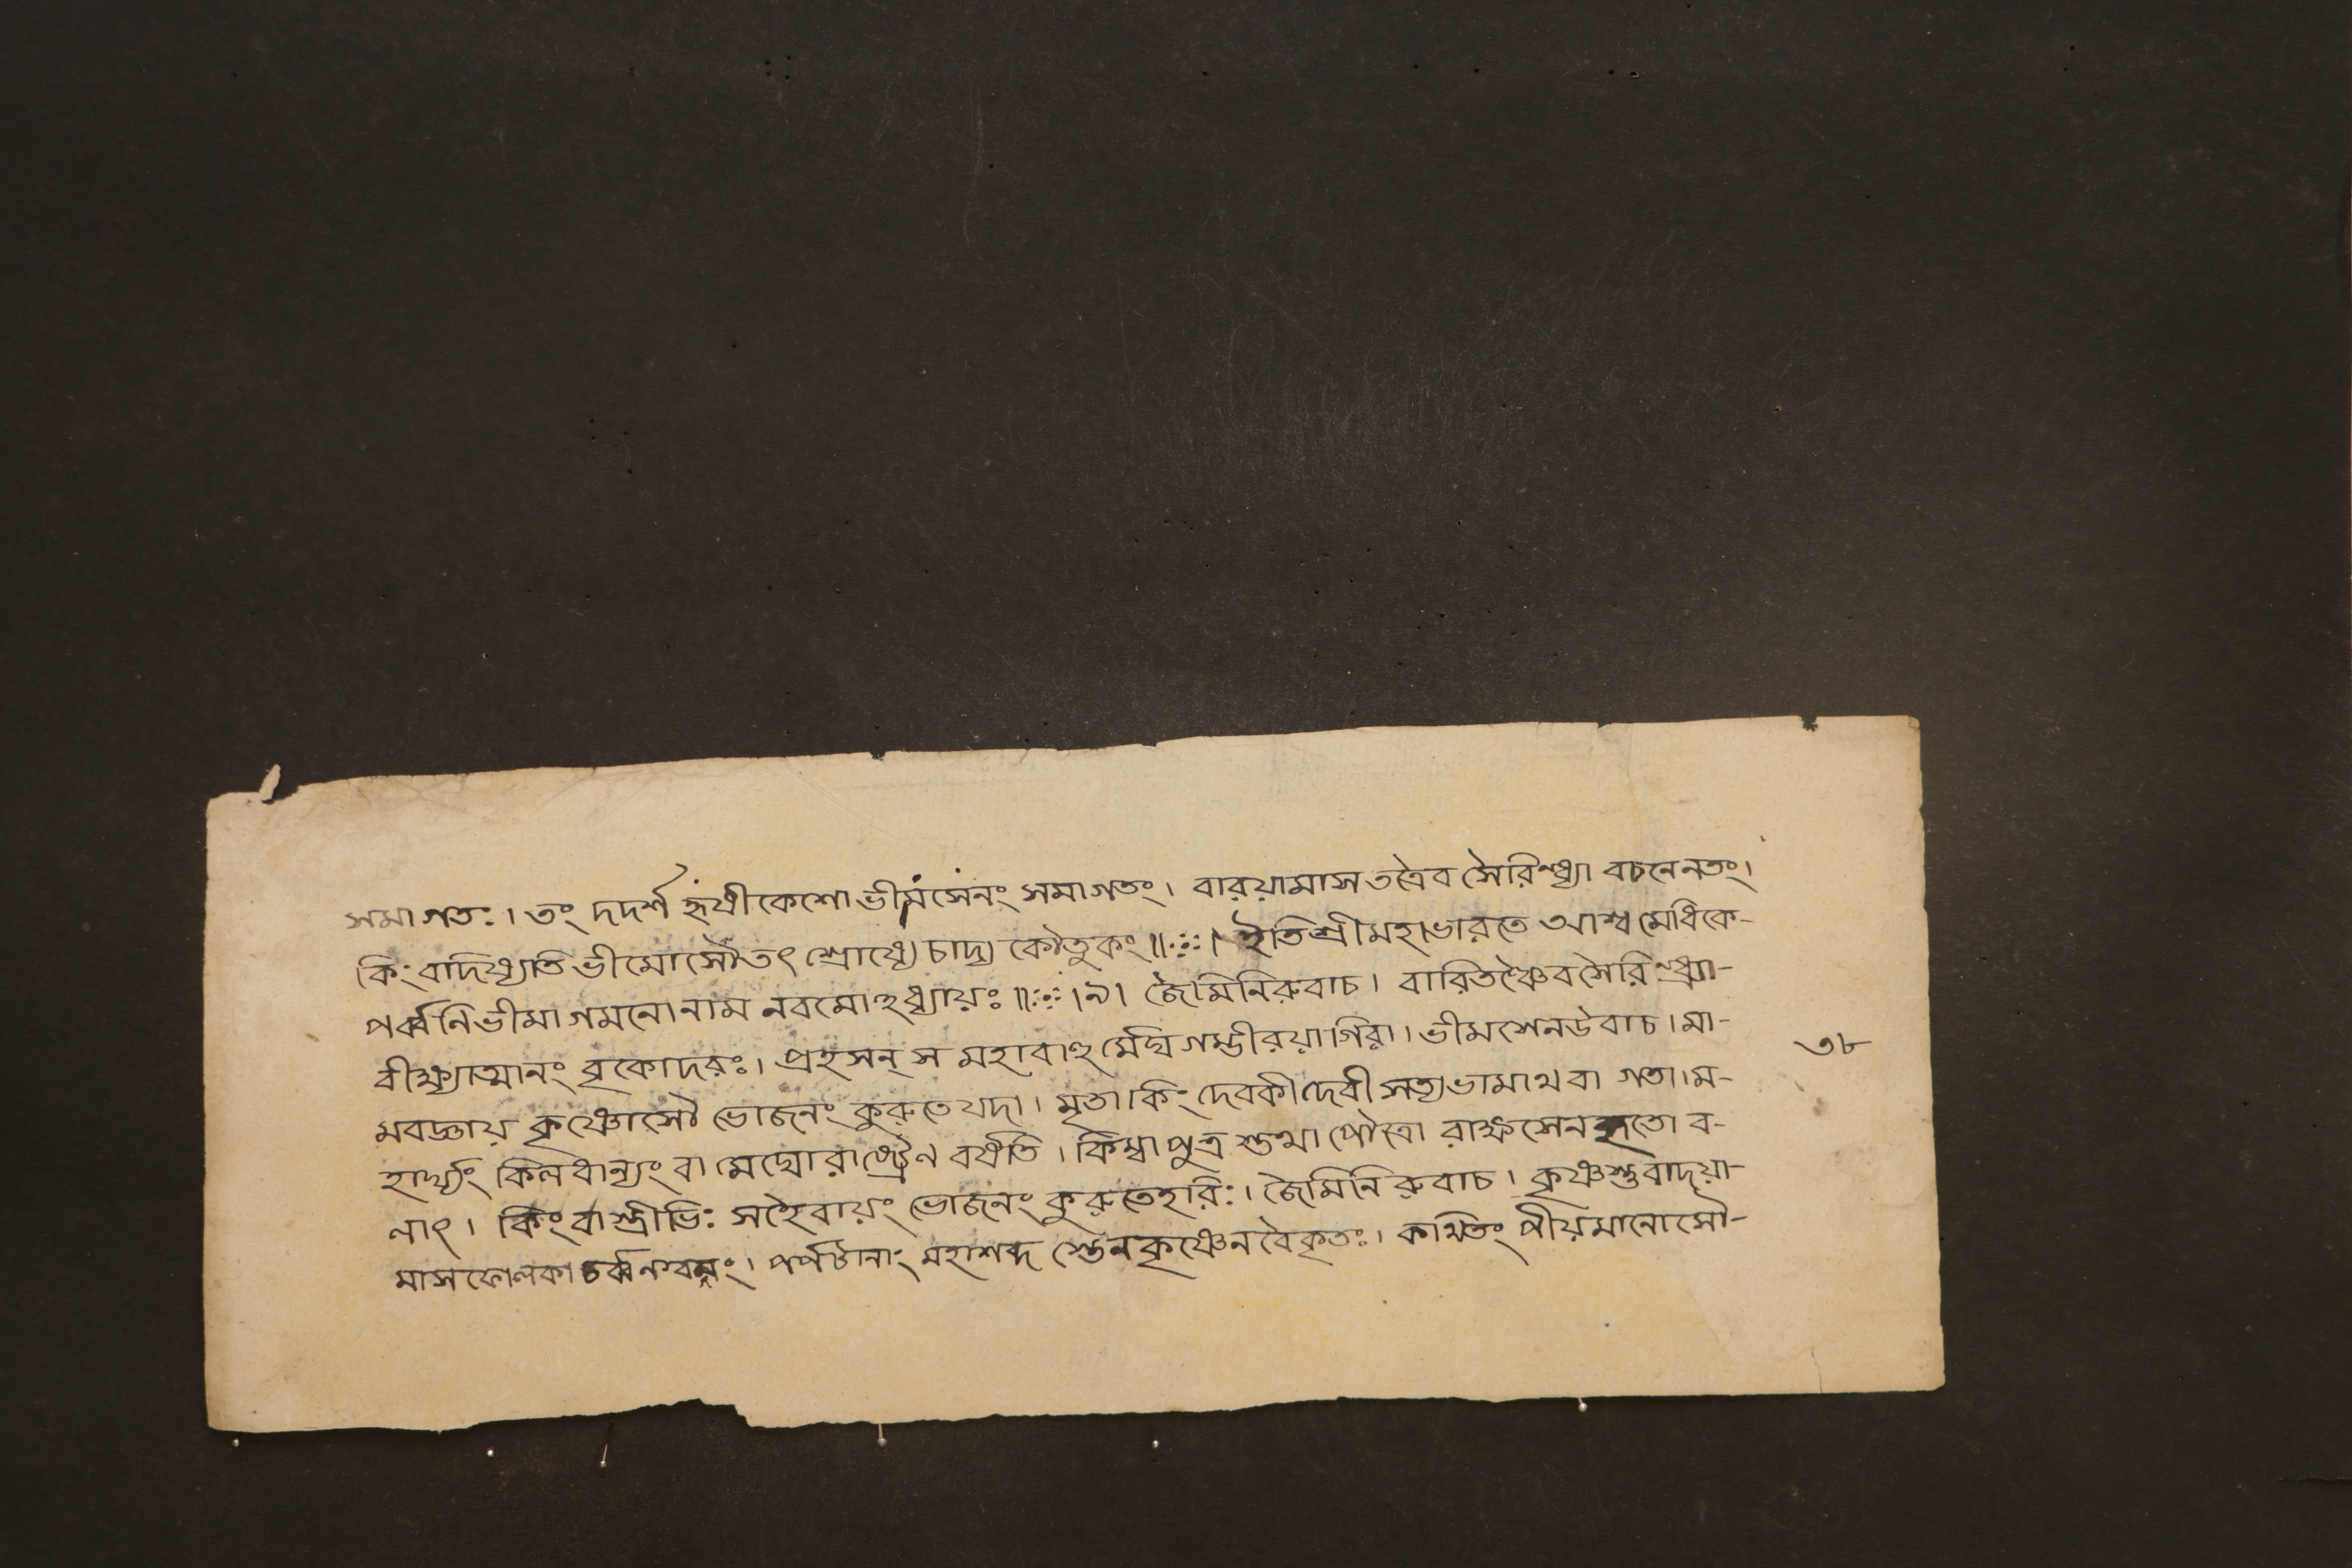 সমাগতঃ। তং দদর্শ হৃষীকেশো ভীমসেনং সমাগতং। বারয়ামাস তত্রৈব সৈরিন্ধ্র্যা বচনেন তং।
কিং বাদিষ্যতি ভীমোসৌ তৎ শ্রোষ্যে চাদ্য কৌতুকং॥ ইতি শ্রীমহাভারতে আশ্বমেধিকে-
পর্ব্বনি ভীমাগমনো নাম নবমোহধ্যায়ঃ॥ ।৯। জৈমিনিরুবাচ। বারিতশ্চৈব সৈরিন্ধ্র্যা-
বীক্ষ্যাত্মানং বৃকোদরঃ। প্রহসন্ স মহাবাহু র্মেঘগম্ভীরয়া গিরা। ভীমসেন উবাচ। মা-
মবজ্ঞায় কৃষ্ণোসৌ ভোজনং কুরুতে যদা। মৃতা কিং দেবকীদেবী সত্যভামাথবা গতা। ম-
হার্ঘ্যং কিল ধান্যং বা মেঘো রাষ্ট্রেণ বর্ষতি। কিম্বা পুত্র স্তথা পৌত্রো রাক্ষসেন হৃতো ব-
লাৎ। কিং বা স্ত্রীভিঃ সহৈবায়ং ভোজনং কুরুতে হরিঃ। জৈমিনিরুবাচ। কৃষ্ণস্তু বাদয়া-
মাস ফেলকা চর্ব্বন। পর্পটানাং মহাশব্দ স্তেন কৃষ্ণেন বৈ কৃতঃ। কথিতং পীয়মানোসৌ-
৩৮